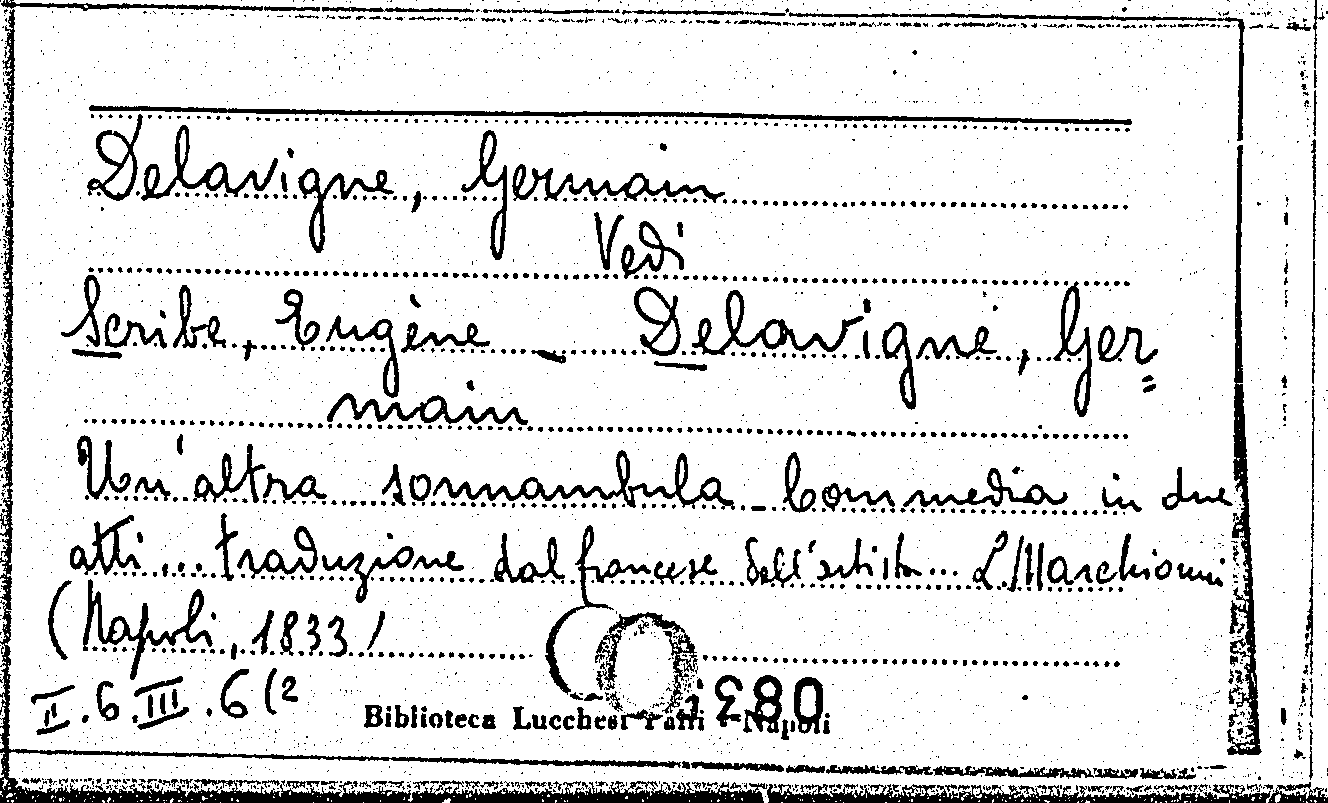 Delavigne, Germain
Vedi
Scribe, Eugène - Delavigne, Ger
=
main
Un'altra sonnambula - Commedia in due
atti... traduzione dal francese dell'artista... L. Marchionni
(Napoli, 1833)
II.6.III.6(2
Biblioteca Lucchesi Palli - Napoli